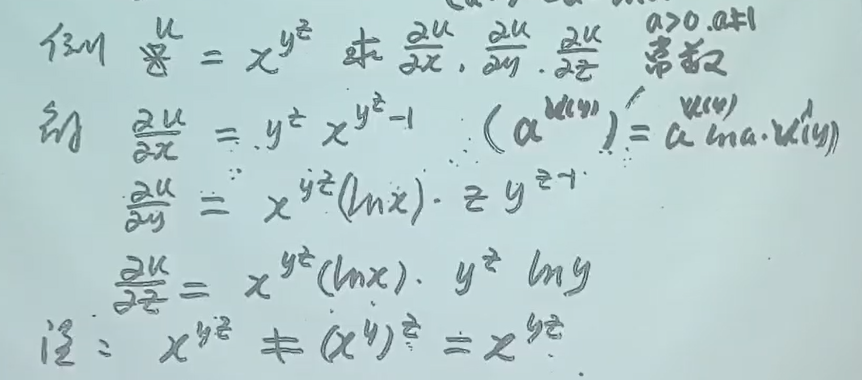 例1 u = x^{y^z} 求 ∂u/∂x, ∂u/∂y, ∂u/∂z a>0, a≠1 常数
解 ∂u/∂x = y^z x^{y^z-1} (a^{u(y)})' = a^{u(y)} lna·u'(y)
∂u/∂y = x^{y^z}(lnx)· z y^{z-1}
∂u/∂z = x^{y^z}(lnx)· y^z lny
注: x^{y^z} ≠ (x^y)^z = x^{yz}